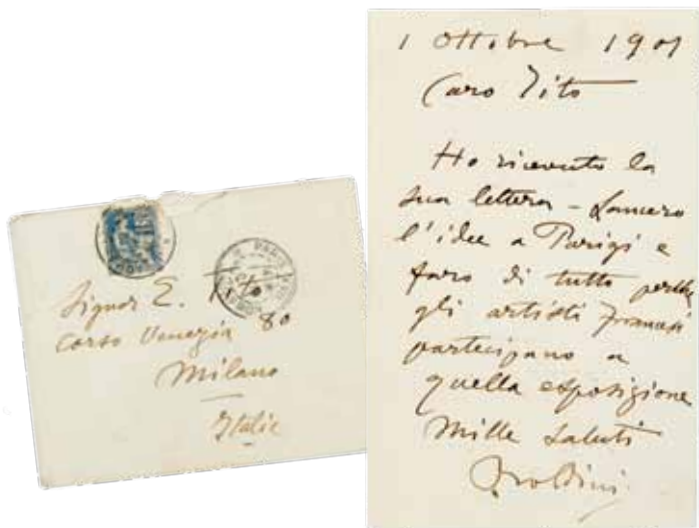 Signor E. Tito
Corso Venezia 80
Milano
Italie
1 Ottobre 1901
Caro Tito
Ho ricevuto la
sua lettera - Lancero
l'idee a Parigi e
faro di tutto perche
gli artisti francesi
partecipano a
quella esposizione
Mille Saluti
Boldini